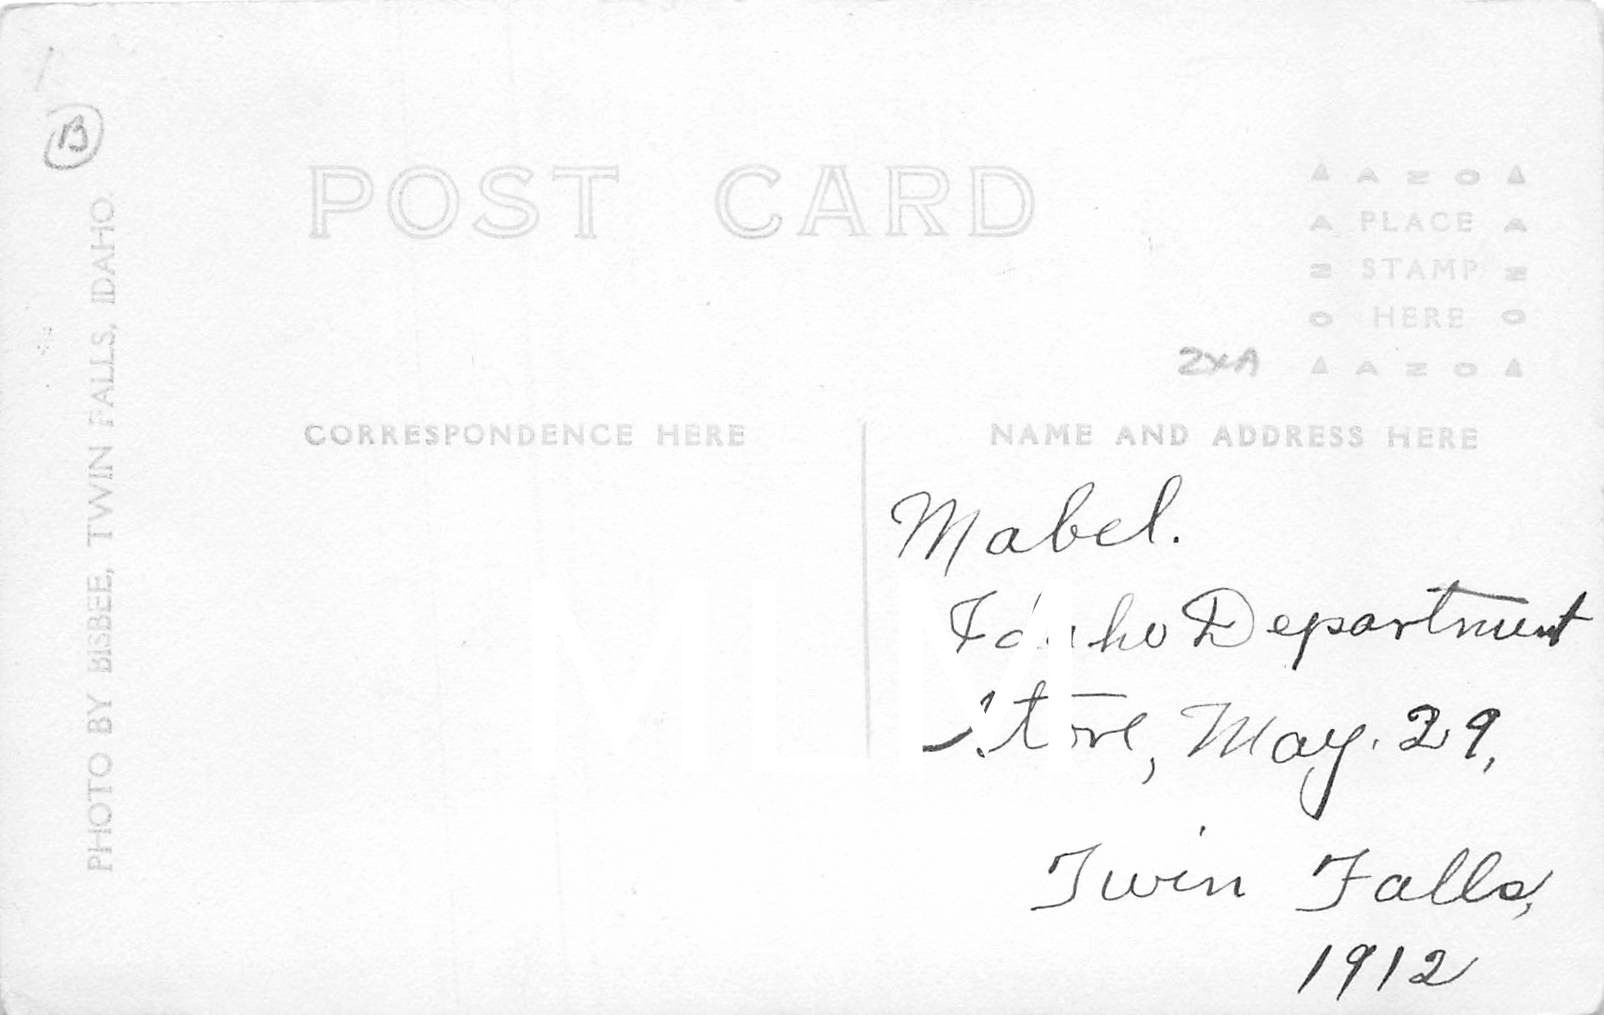 B
POST CARD
▲ A Z O ▲
A PLACE A
Z STAMP Z
O HERE O
2XA ▲ A Z O ▲
CORRESPONDENCE HERE
NAME AND ADDRESS HERE
PHOTO BY BISBEE, TWIN FALLS, IDAHO.
Mabel.
Idaho Department
Store, May. 29,
Twin Falls,
1912
MLM